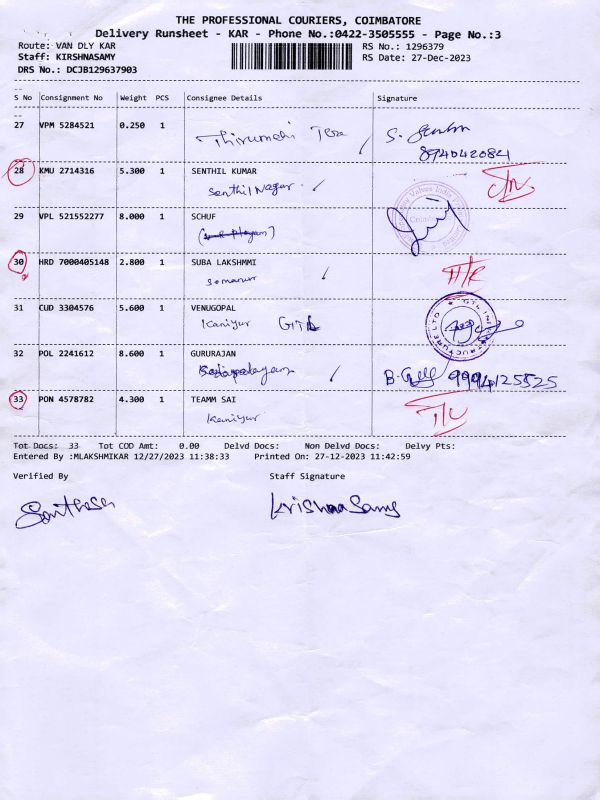 THE PROFESSIONAL COURIERS, COIMBATORE
Delivery Runsheet - KAR - Phone No.:0422-3505555 - Page No.:3
Route: VAN DLY KAR RS No.: 1296379
Staff: KIRSHNASAMY RS Date: 27-Dec-2023
DRS No.: DCJB129637903
S No Consignment No Weight PCS Consignee Details Signature
27 VPM 5284521 0.250 1
894042084
28 KMU 2714316 5.300 1 SENTHIL KUMAR
Senthil Nagar
29 VPL 521552277 8.000 1 SCHUF
30 HRD 7000405148 2.800 1 SUBA LAKSHMMI
Somanur
31 CUD 3304576 5.600 1 VENUGOPAL
Kaniyur
32 POL 2241612 8.600 1 GURURAJAN
9994125525
33 PON 4578782 4.300 1 TEAMM SAI
Kaniyur
Tot Docs: 33 Tot COD Amt: 0.00 Delvd Docs: Non Delvd Docs: Delvy Pts:
Entered By :MLAKSHMIKAR 12/27/2023 11:38:33 Printed On: 27-12-2023 11:42:59
Verified By Staff Signature
KrishnaSamy